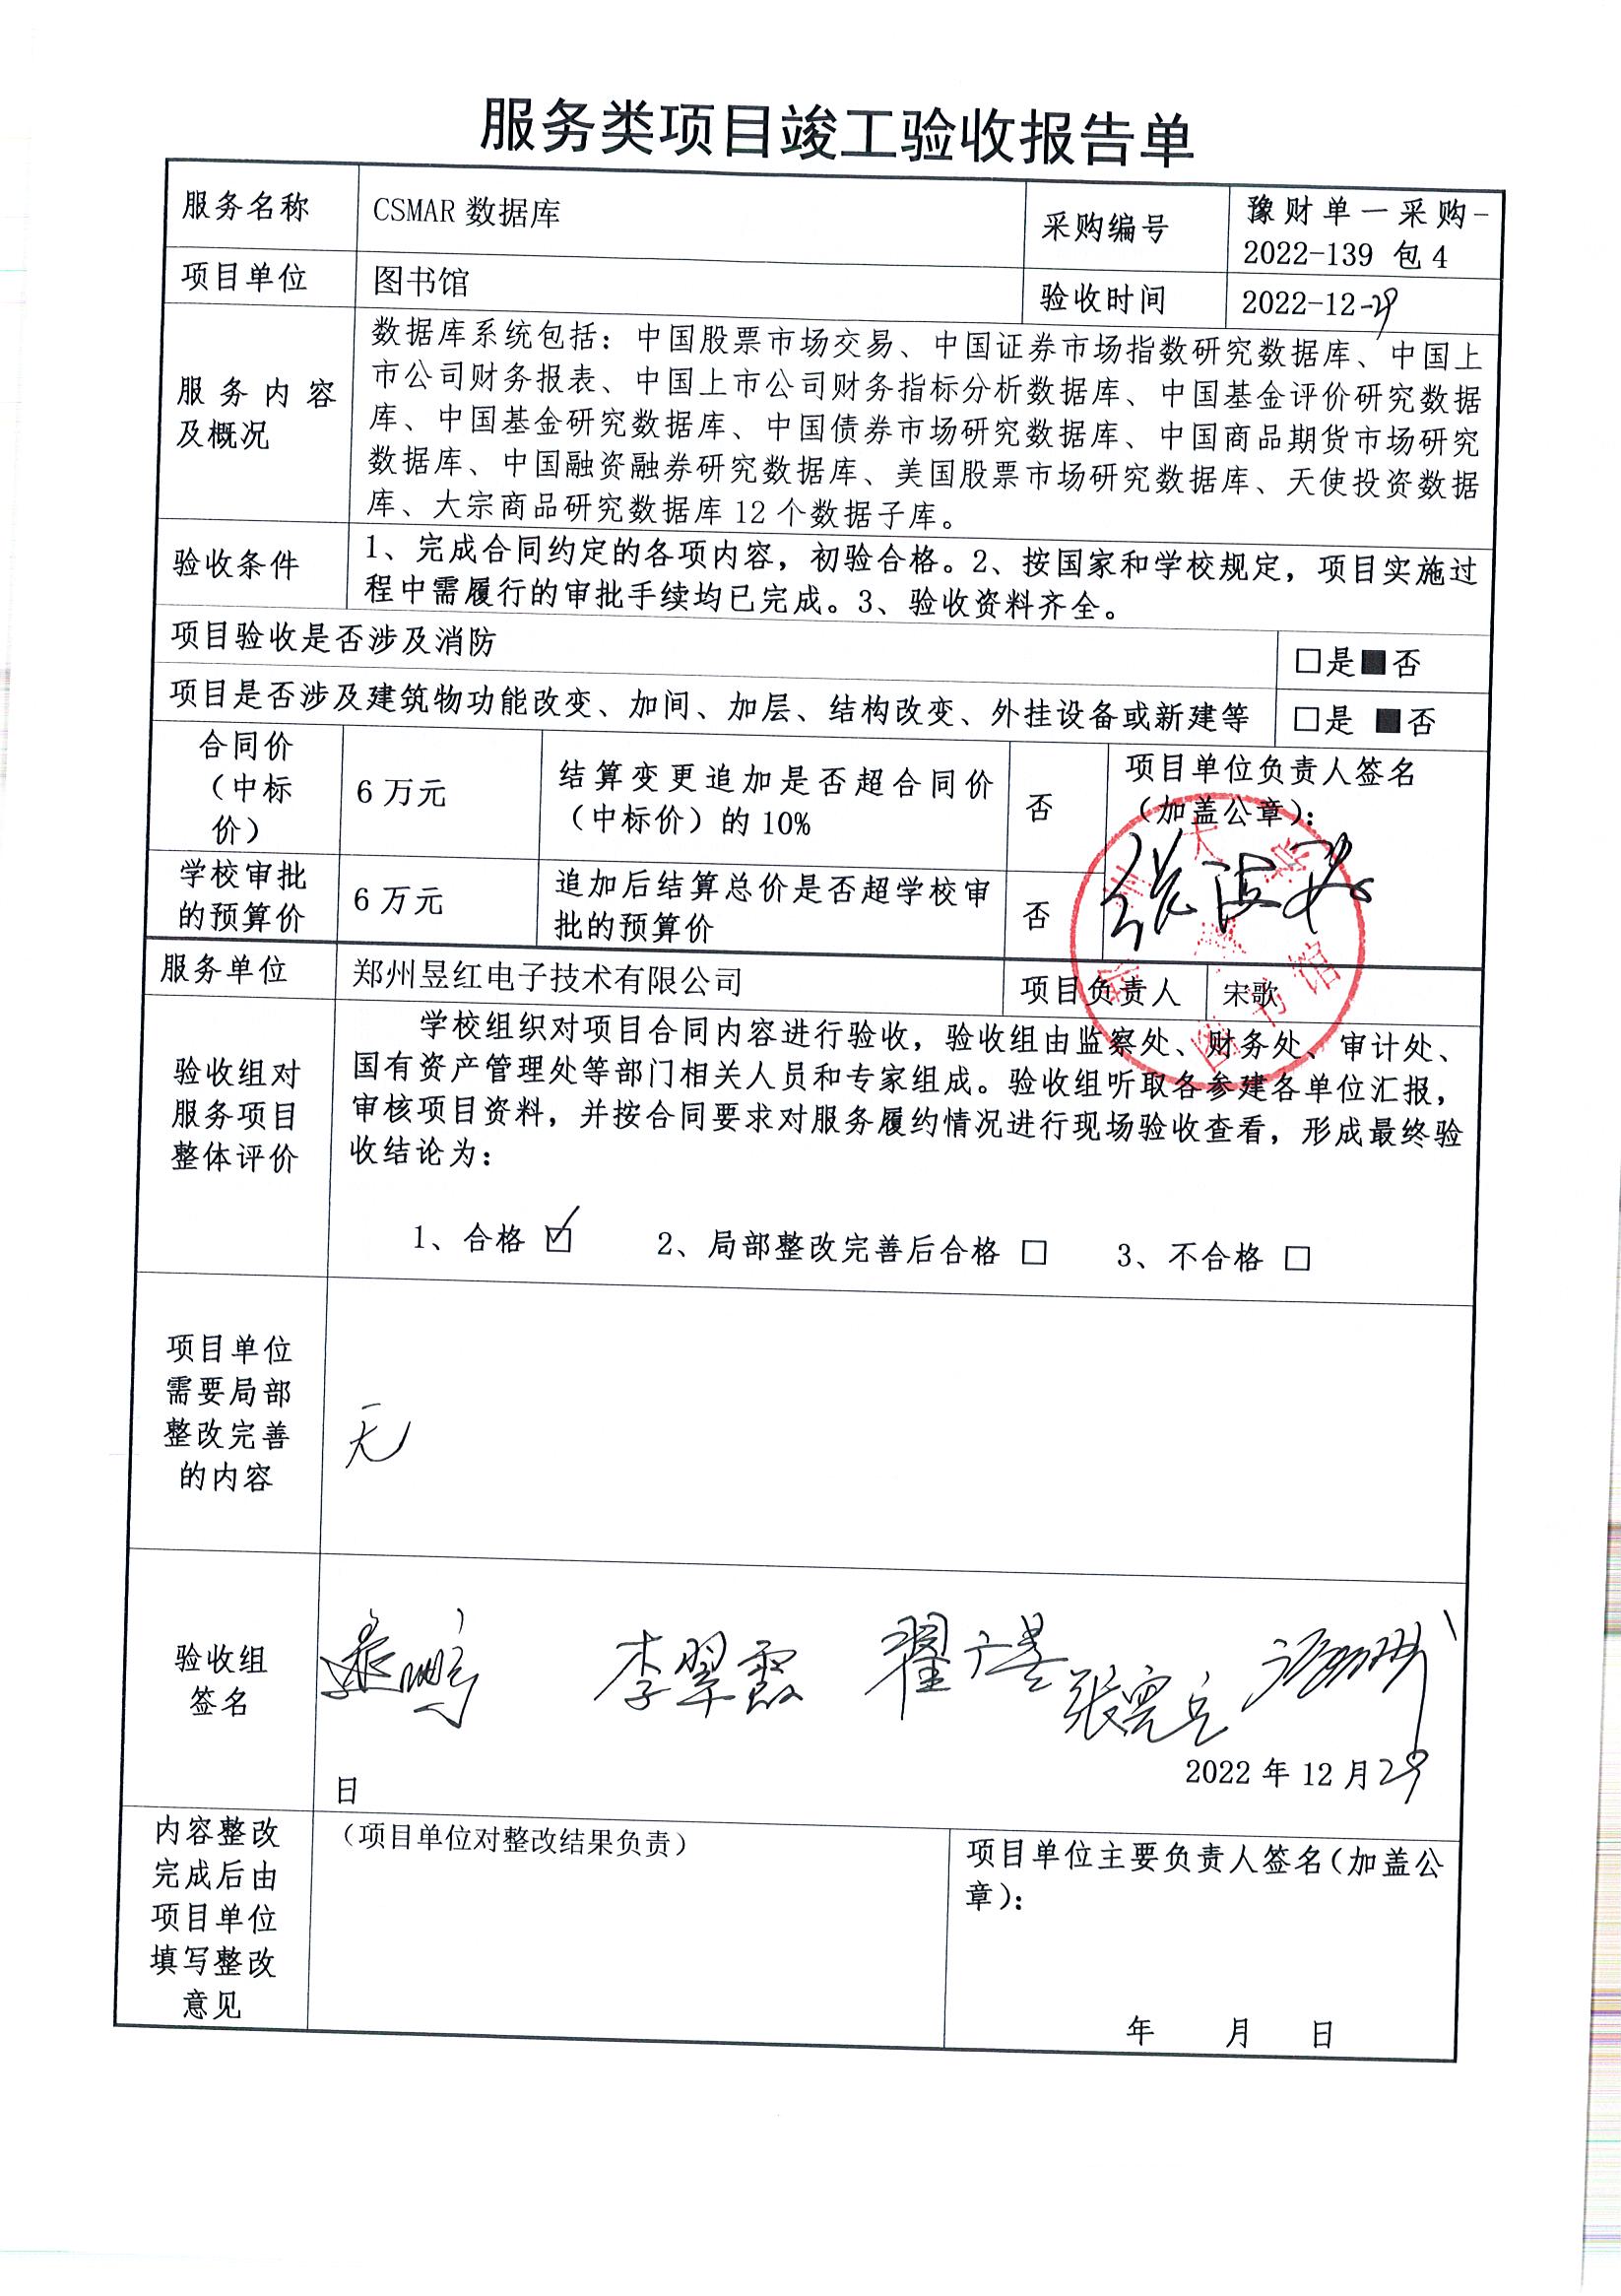 服务类项目竣工验收报告单
服务名称
CSMAR 数据库
采购编号
豫财单一采购-
2022-139 包4
项目单位
图书馆
验收时间
2022-12-29
服务内容
及概况
数据库系统包括：中国股票市场交易、中国证券市场指数研究数据库、中国上
市公司财务报表、中国上市公司财务指标分析数据库、中国基金评价研究数据
库、中国基金研究数据库、中国债券市场研究数据库、中国商品期货市场研究
数据库、中国融资融券研究数据库、美国股票市场研究数据库、天使投资数据
库、大宗商品研究数据库 12 个数据子库。
验收条件
1、完成合同约定的各项内容，初验合格。2、按国家和学校规定，项目实施过
程中需履行的审批手续均已完成。3、验收资料齐全。
项目验收是否涉及消防
□是■否
项目是否涉及建筑物功能改变、加间、加层、结构改变、外挂设备或新建等
□是 ■否
合同价
（中标
价）
6 万元
结算变更追加是否超合同价
（中标价）的 10%
否
项目单位负责人签名
（加盖公章）：
学校审批
的预算价
6 万元
追加后结算总价是否超学校审
批的预算价
否
服务单位
郑州昱红电子技术有限公司
项目负责人
宋歌
验收组对
服务项目
整体评价
学校组织对项目合同内容进行验收，验收组由监察处、财务处、审计处、
国有资产管理处等部门相关人员和专家组成。验收组听取各参建各单位汇报，
审核项目资料，并按合同要求对服务履约情况进行现场验收查看，形成最终验
收结论为：
1、合格 ☑ 2、局部整改完善后合格 □ 3、不合格 □
项目单位
需要局部
整改完善
的内容
无
验收组
签名
李翠霞
2022 年 12 月 29
日
内容整改
完成后由
项目单位
填写整改
意见
（项目单位对整改结果负责）
项目单位主要负责人签名（加盖公
章）：
年 月 日